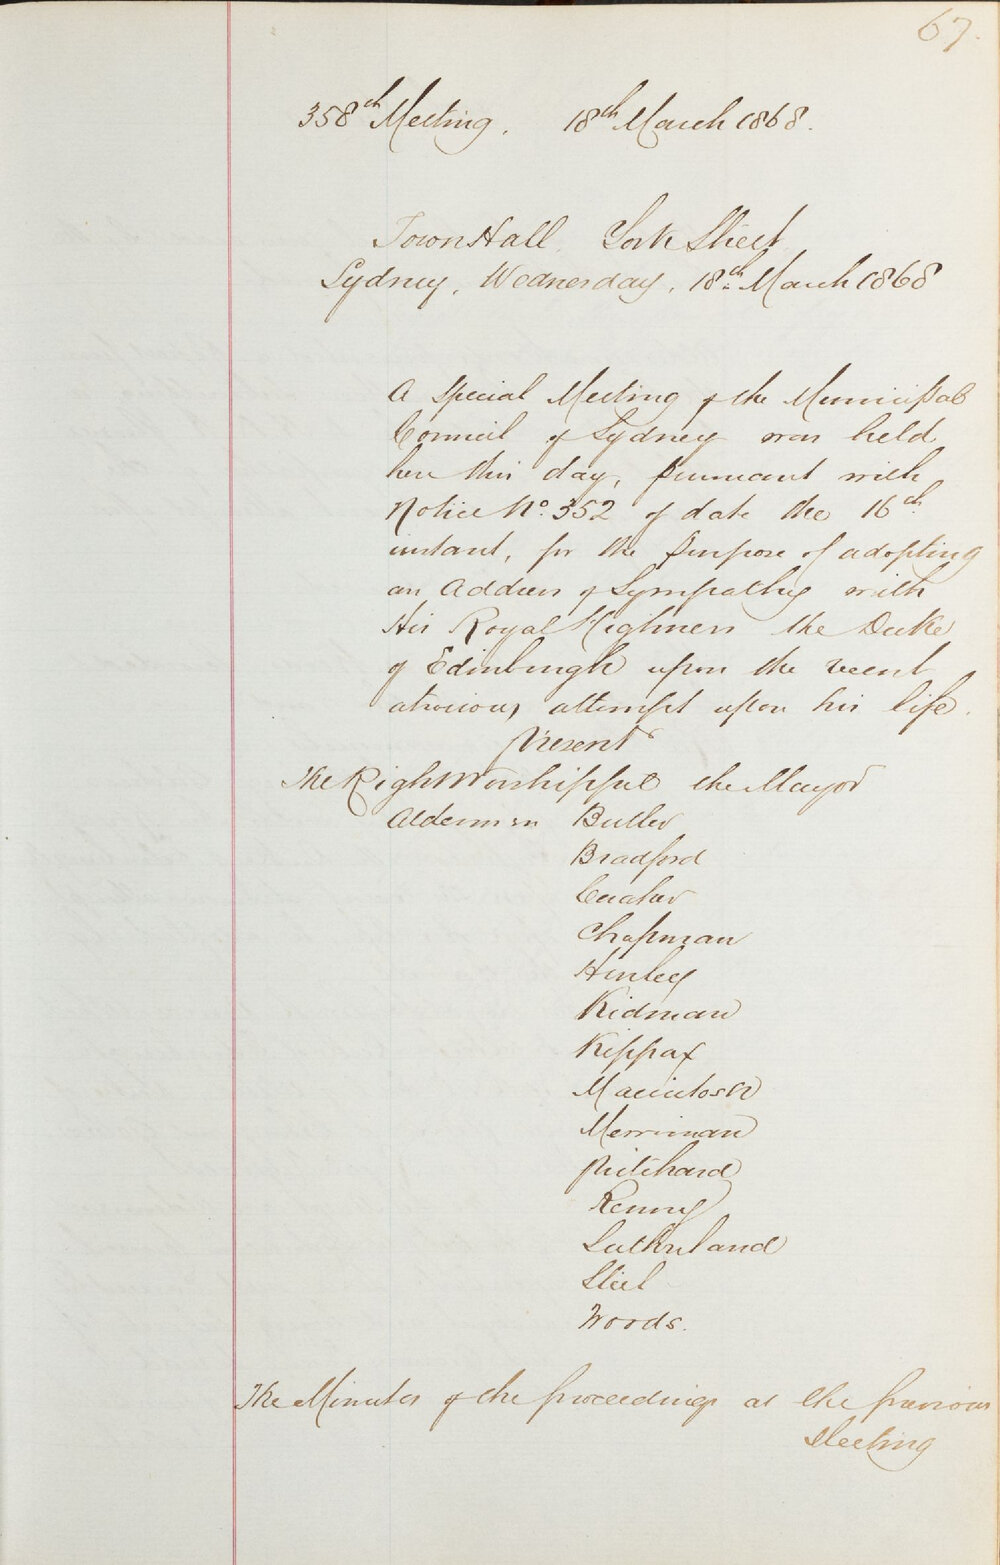 67.
358th Meeting. 18th March 1868.
Town Hall, York Street
Sydney, Wednesday, 18th March 1868
A Special Meeting of the Municipal
Council of Sydney was held
here this day, pursuant with
Notice No. 352 of date the 16th
instant, for the purpose of adopting
an Address of Sympathy with
His Royal Highness the Duke
of Edinburgh upon the recent
atrocious attempt upon his life.
Present
The Right Worshipful the Mayor
Aldermen Butler
Bradford
Caraher
Chapman
Hurley
Kidman
Kippax
Macintosh
Merriman
Pritchard
Renny
Sutherland
Steel
Woods.
The Minutes of the proceedings at the previous
Meeting